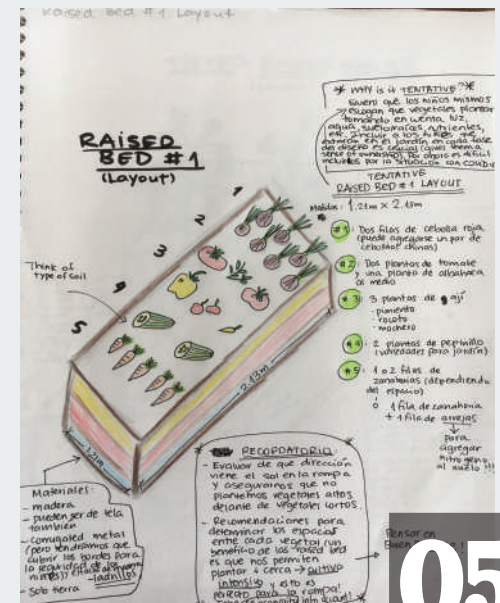 Raised Bed #1 Layout
RAISED
BED #1
(Layout)
* WHY is it TENTATIVE? *
Quiero que los niños mismos
escogan que vegetales plantar
tomando en cuenta luz,
agua, suelo, nutrientes,
etc. Incluir a los niños que
estarán en el jardín en cada fase
del diseño es crucial (gives them a
sense of ownership). Por ahora es difícil
incluirlos por la situación con COVID
TENTATIVE
RAISED BED #1 LAYOUT
Medidas: 1.21m × 2.13m
#1: Dos filas de cebolla roja
(puede agregarse un par de
cebollas chinas)
#2: Dos plantas de tomate
y una planta de albahaca
al medio
#3: 3 plantas de ají
· pimiento
· rocoto
· mochero
#4: 2 plantas de pepinillo
(variedades para jardín)
#5: 1 o 2 filas de
zanahorias (dependiendo
del espacio)
ó 1 fila de zanahoria
+ 1 fila de arvejas
↓
para
agregar
nitrógeno
al suelo!!!
1
2
3
4
5
Think of
type of soil
2.13m
1.21m
Materiales:
- madera
- pueden ser de tela
también
- corrugated metal
(pero tendríamos que
cubrir los bordes para
la seguridad de los
niños)
- ladrillos
- solo tierra
RECORDATORIO
- Evaluar de que dirección
viene el sol en la rampa
y asegurarnos que no
plantemos vegetales altos
delante de vegetales cortos.
- Recomendaciones para
determinar los espacios
entre cada vegetal (un
beneficio de las raised bed
es que nos permiten
plantar + cerca → cultivo
intensivo y esto es
perfecto para la rampa!
Pensar en
05